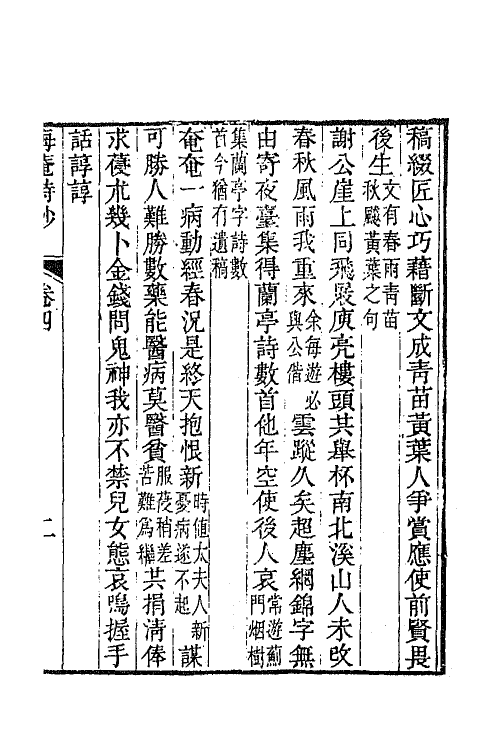 稿綴匠心巧藉斷文成靑苗黃葉人爭賞應使前賢畏
後生文有春雨靑苗秋颷黃葉之句
謝公崖上同飛屐庾亮樓頭共舉杯南北溪山人未改
春秋風雨我重來余每遊必與公偕雲蹤久矣超塵網錦字無
由寄夜臺集得蘭亭詩數首他年空使後人哀常遊薊門烟樹
集蘭亭字詩數首今猶有遺稿
奄奄一病動經春況是終天抱恨新時値太夫人新憂病遂不起謀
可勝人難勝數藥能醫病莫醫貧服葠稍差苦難爲繼共捐淸俸
求葠朮幾卜金錢問鬼神我亦不禁兒女態哀鳴握手
話諄諄
海菴詩鈔 卷四 二